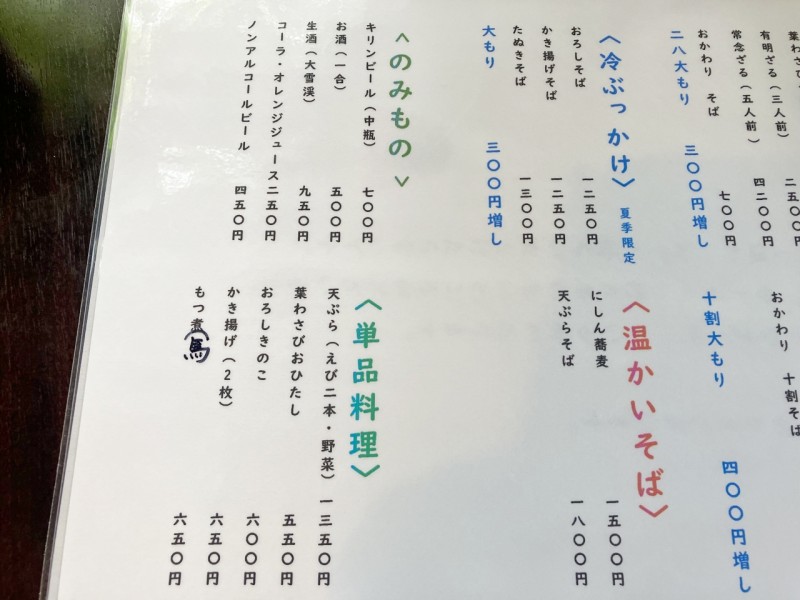 有明ざる（三人前） 四二〇〇
常念ざる（五人前） 七〇〇〇
おかわり そば 七〇〇円
二八大もり 三〇〇円増し
〈冷ぶっかけ〉 夏季限定
おろしそば 一二五〇円
かき揚げそば 一二五〇円
たぬきそば 一三〇〇円
大もり 三〇〇円増し
〈のみもの〉
キリンビール（中瓶） 七〇〇円
お酒（一合） 五〇〇円
生酒（大雪渓） 九五〇円
コーラ・オレンジジュース 二五〇円
ノンアルコールビール 四五〇円
おかわり 十割そば
十割大もり 四〇〇円増し
〈温かいそば〉
にしん蕎麦 一五〇〇円
天ぷらそば 一八〇〇円
〈単品料理〉
天ぷら（えび二本・野菜） 一三五〇円
葉わさびおひたし 五五〇円
おろしきのこ 六〇〇円
かき揚げ（2枚） 六五〇円
もつ煮（馬） 六五〇円